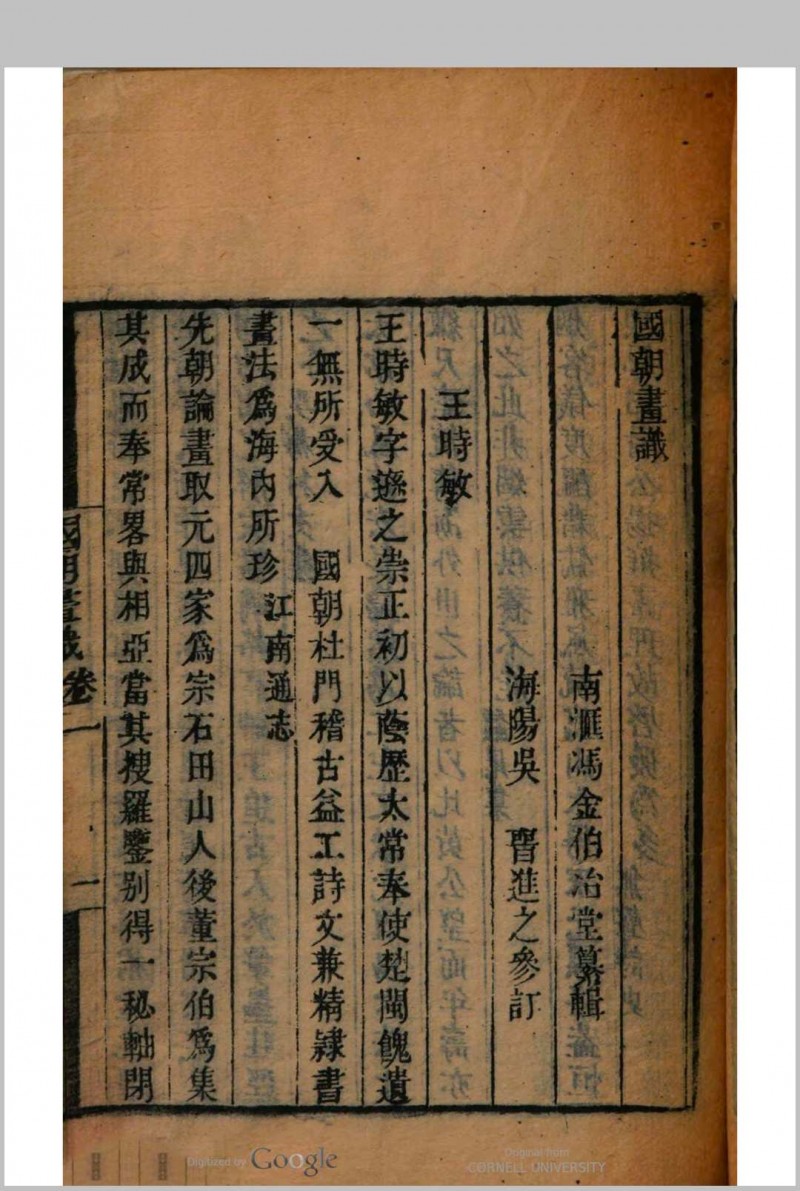 國朝畫識
南滙馮金伯冶堂纂輯
海陽吳　晉進之參訂
王時敏
王時敏字遜之崇正初以蔭歷太常奉使楚閩餽遺
一無所受入　國朝杜門稽古益工詩文兼精隷書
畫法爲海內所珍 江南通志
先朝論畫取元四家爲宗石田山人後董宗伯爲集
其成而奉常畧與相亞當其搜羅鑒别得一秘軸閉
國朝畫識 卷一 一
Digitized by Google
Original from
CORNELL UNIVERSITY